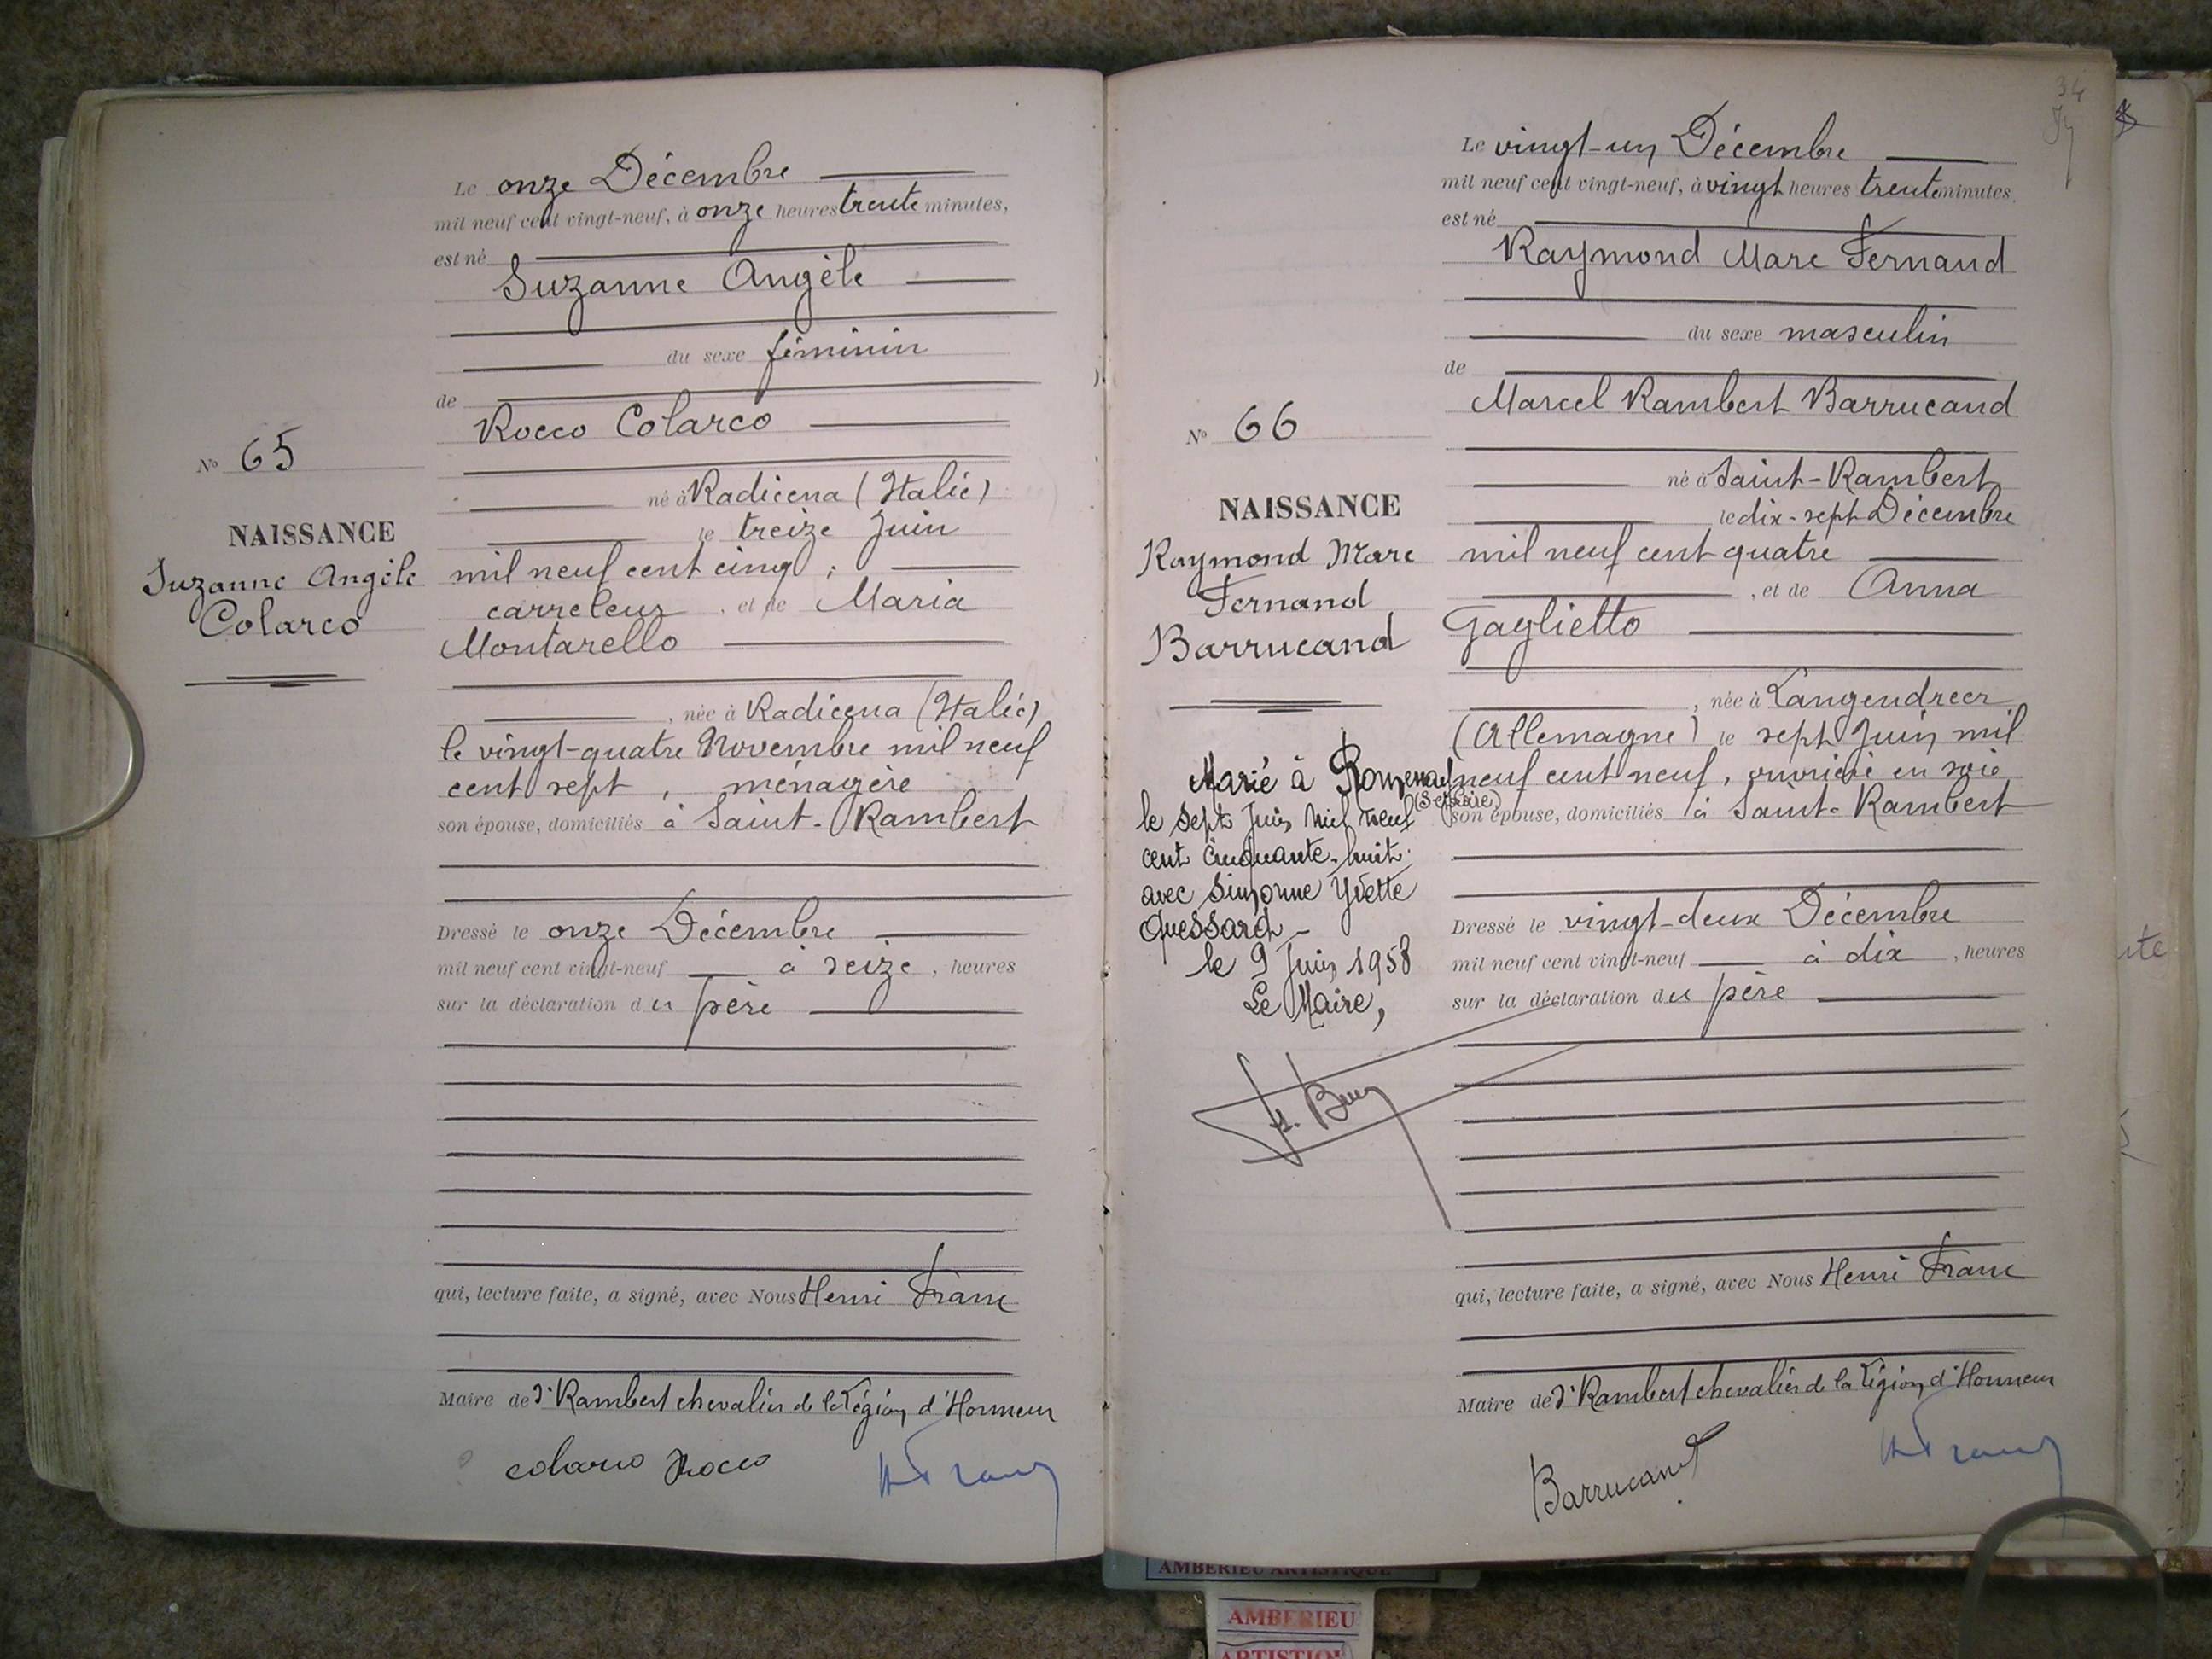 Le onze Décembre
mil neuf cent vingt-neuf, à onze heures trente minutes,
est né
Suzanne Angèle
du sexe féminin
de
Rocco Colarco
né à Radicena (Italie)
le treize Juin
mil neuf cent cinq ;
carreleur, et de Maria
Montarello
, née à Radicena (Italie)
le vingt-quatre Novembre mil neuf
cent sept, ménagère
son épouse, domiciliés à Saint-Rambert
Dressé le onze Décembre
mil neuf cent vingt-neuf à seize, heures
sur la déclaration du père
qui, lecture faite, a signé, avec Nous Henri Franc
Maire de St Rambert chevalier de la Légion d'Honneur
colarco Rocco
No 65
NAISSANCE
Suzanne Angèle
Colarco
34
Le vingt-un Décembre
mil neuf cent vingt-neuf, à vingt heures trente minutes,
est né
Raymond Marc Fernand
du sexe masculin
de
Marcel Rambert Barrucand
né à Saint-Rambert
le dix-sept Décembre
mil neuf cent quatre
, et de Anna
Gaglietto
, née à Langendreer
(Allemagne) le sept Juin mil
neuf cent neuf, ouvrière en soie
son épouse, domiciliés à Saint-Rambert
Dressé le vingt-deux Décembre
mil neuf cent vingt-neuf à dix, heures
sur la déclaration du père
qui, lecture faite, a signé, avec Nous Henri Franc
Maire de St Rambert chevalier de la Légion d'Honneur
Barrucand
H Franc
No 66
NAISSANCE
Raymond Marc
Fernand
Barrucand
Marié à
le sept Juin mil neuf
cent cinquante-huit
avec Simonne Yvette
Quessard -
le 9 Juin 1958
Le Maire,
AMBERIEU ARTISTIQUE
AMBERIEU